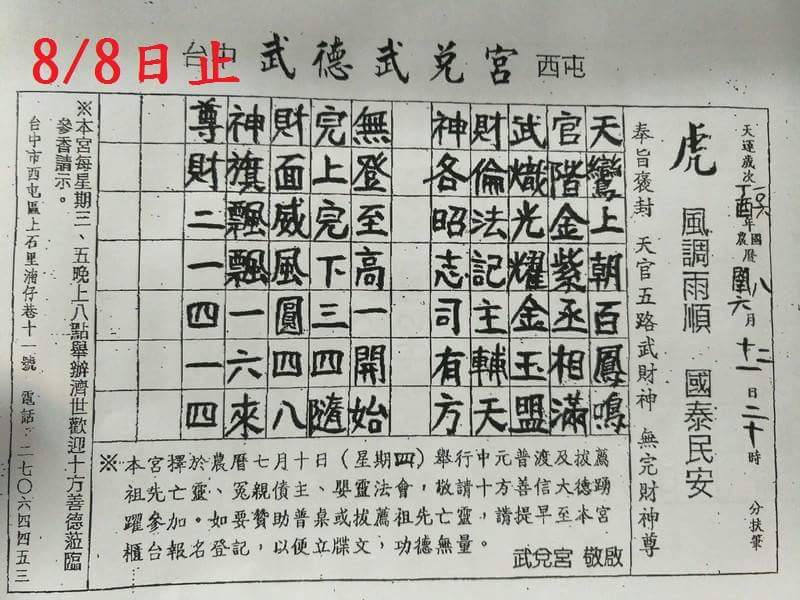 8/8日止
台中 武德武兌宮 西屯
天運歲次丁酉年 國農曆 八閏六月 十二十一日二十時 分扶筆
虎 風調雨順 國泰民安
奉旨褒封 天官五路武財神 無完財神尊
天鸞上朝百鳳鳴
官階金紫丞相滿
武熾光耀金玉盟
財倫法記主輔天
神各昭志司有方
無登至高一開始
完上完下三四隨
財面威風圓四八
神旗飄飄一六來
尊財二一四一四
※本宮擇於農曆七月十日（星期四）舉行中元普渡及拔薦
祖先亡靈、冤親債主、嬰靈法會，敬請十方善信大德踴
躍參加。如要贊助普桌或拔薦祖先亡靈，請提早至本宮
櫃台報名登記，以便立牒文，功德無量。
武兌宮 敬啟
※本宮每星期三、五晚上八點舉辦濟世歡迎十方善德蒞臨
參香請示。
台中市西屯區上石里湳仔巷十一號 電話：二七０六四四五三